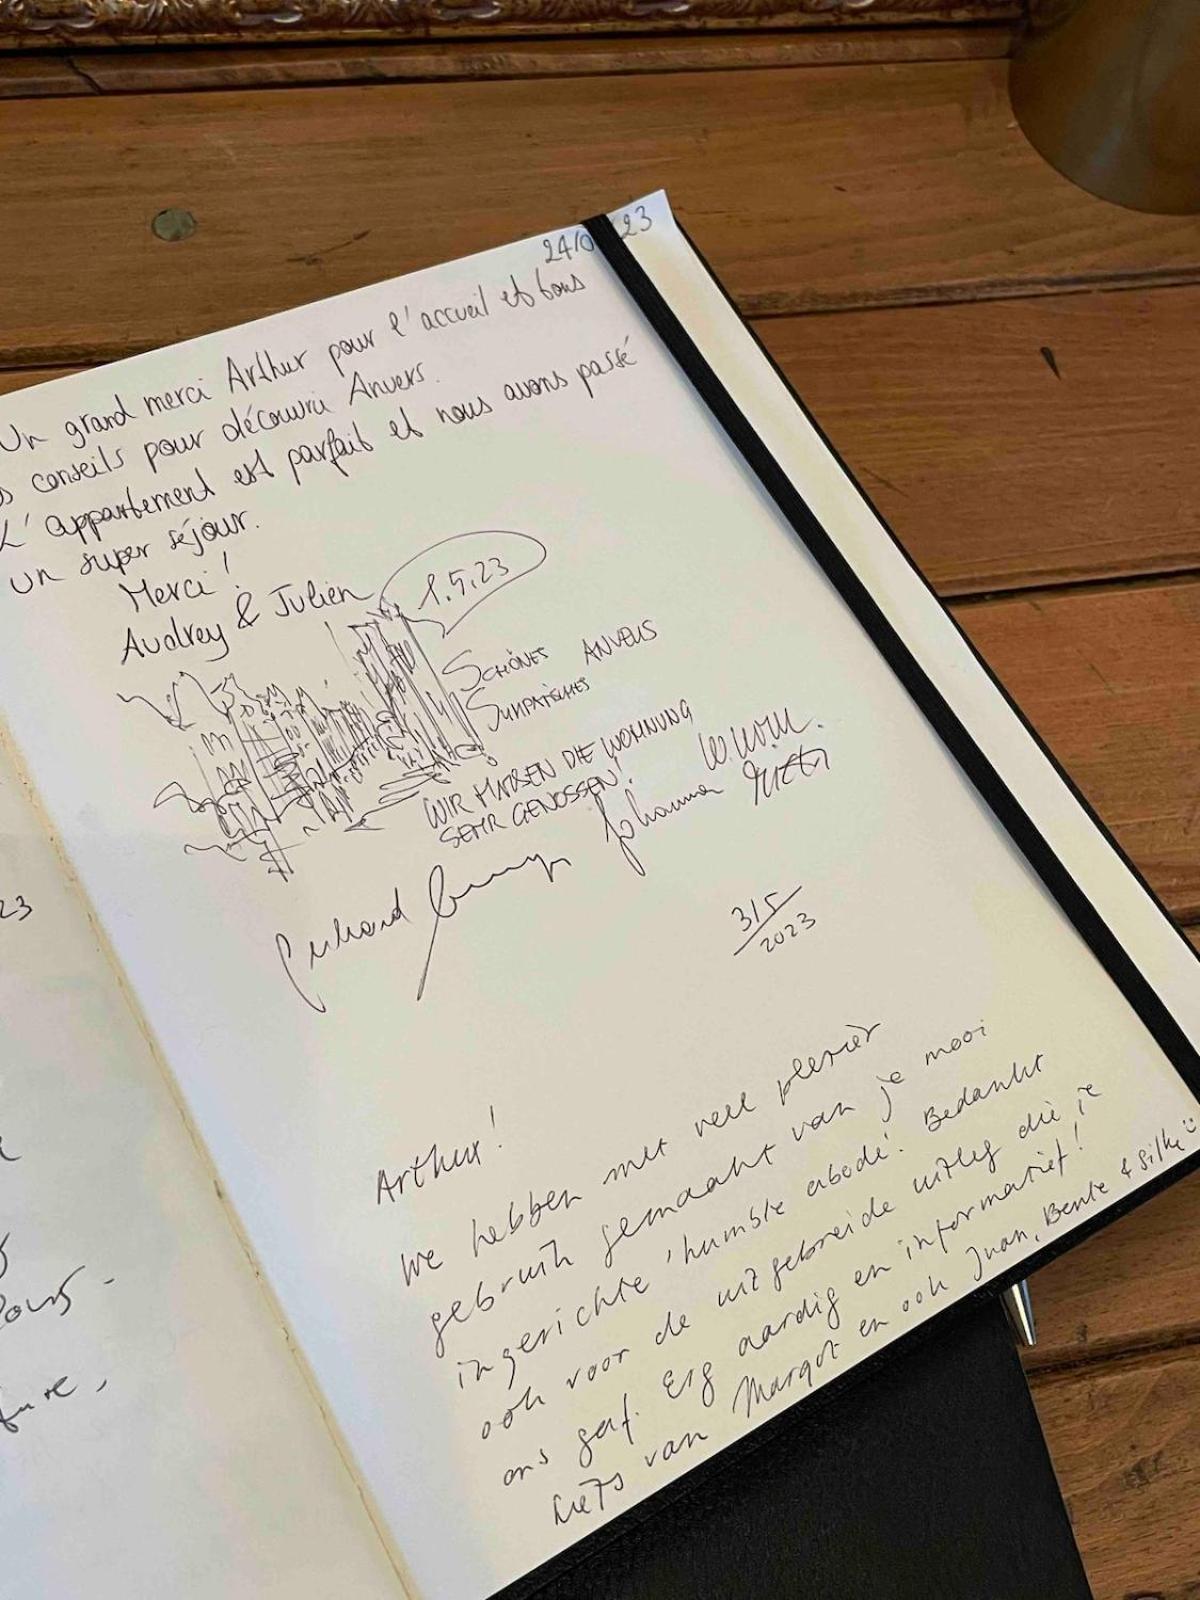 24/0 23
Un grand merci Arthur pour l'accueil et bons
conseils pour découvrir Anvers.
L'appartement est parfait et nous avons passé
un super séjour.
Merci !
Audrey & Julien
1.5.23
SCHÖNES ANVERS
WIR HABEN DIE WOHNUNG
SEHR GENOSSEN!
Johanna
Gerhard
3/5
2023
Arthur!
We hebben met veel plezier
gebruik gemaakt van je mooi
ingerichte 'humble abode'. Bedankt
ook voor de uitgebreide uitleg die je
ons gaf. Erg aardig en informatief!
Liefs van Margot en ook Juan, Bente & Silke
23